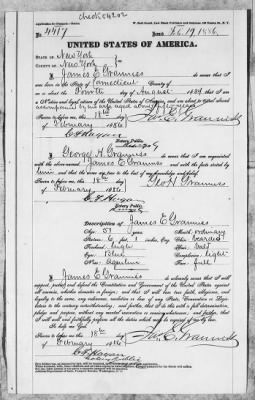 No. 4417 Issued Feb. 19, 1886.
UNITED STATES OF AMERICA.
State of New York
County of New York
I James E. Granniss do swear that I
was born in the State of Connecticut County of
on the Fourth day of August 1834 that I am
a Native and loyal citizen of the United States of America, and am about to travel abroad
Jas. E. Granniss
Sworn to before me, this 18th day
of February 1886
C. F. Hogan
Notary Public
I George H. Granniss do swear that I am acquainted
with the above-named James E. Granniss and with the facts stated by
him and that the same are true to the best of my knowledge and belief.
Sworn to before me, this 18th day
of February 1886
Geo H Granniss
C. F. Hogan
Notary Public
Description of James E. Granniss
Age: 51 years Mouth: ordinary
Stature: 6 feet 1 inches, Eng. Chin: bearded
Forehead: high Hair:
Eyes: Blue Complexion: light
Nose: Aquiline Face: full
I James E. Granniss do solemnly swear that I will
support, protect and defend the Constitution and Government of the United States against
all enemies, whether domestic or foreign; and that I will bear true faith, allegiance, and
loyalty to the same, any ordinance, resolution or law of any State, Convention or Legis-
lature to the contrary notwithstanding; and further, that I do this with a full determin-
ation, pledge and purpose, without any mental reservation or evasion whatsoever; and further, that I
will well and faithfully perform all the duties which may be required of me by law.
So help me God.
Sworn to before me, this 18th day
of February 1886
Jas. E. Granniss
C. F. Hogan
Notary Public